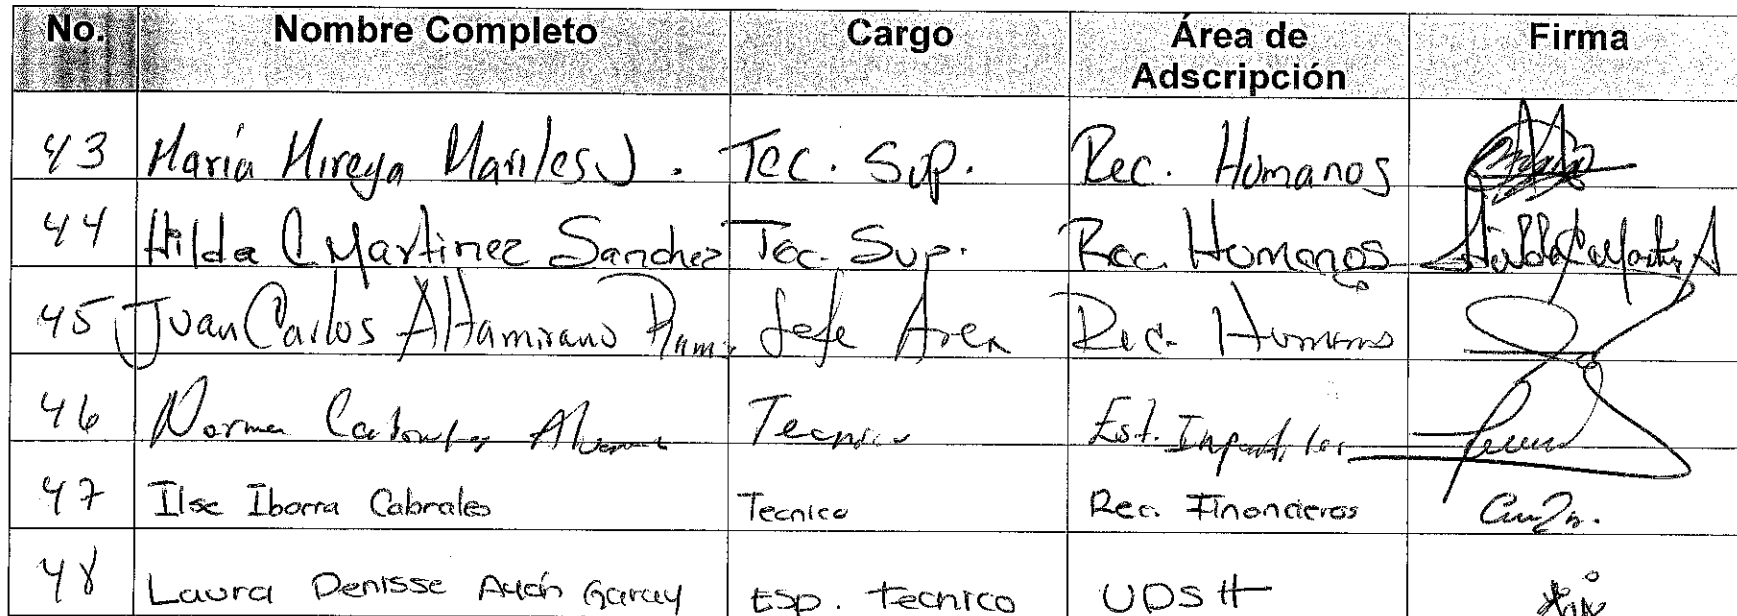 No. Nombre Completo Cargo Área de Adscripción Firma
43 Maria Mireya Mariles J. Tec. Sup. Rec. Humanos
44 Hilda C Martinez Sanchez Tec. Sup. Rec. Humanos
45 Juan Carlos Altamirano Jefe Area Rec. Humanos
46 Norma Tecnico Est.
47 Ilse Iborra Cabrales Tecnico Rec. Financieros
48 Laura Denisse Ayón Garay Esp. tecnico UDSH